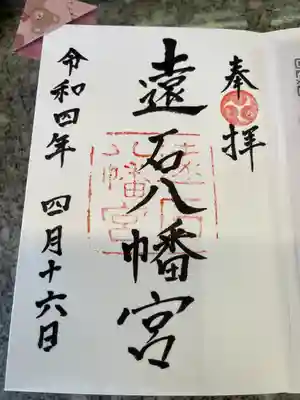 奉拝
遠石八幡宮
令和四年 四月十六日
遠石
八幡宮